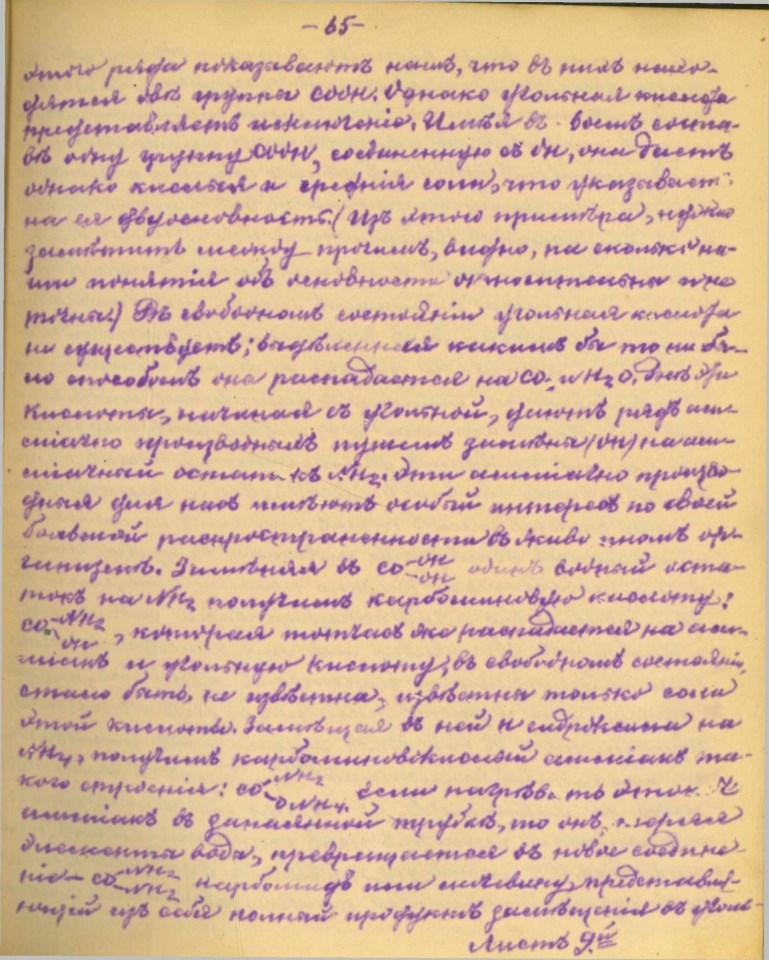 -65-
этого ряда показываютъ намъ, что въ нихъ нахо-
дятся двѣ группы COOH. Однако угольная кислота
представляетъ исключеніе. Имѣя въ своемъ соста-
вѣ одну группу COOH, соединенную съ OH, она даетъ
однако кислыя и среднія соли, что указываетъ
на ея двуосновность. (Изъ этого примѣра, нужно
замѣтить между прочимъ, видно, на сколько на-
ши понятія объ основности относительны и не
точны.) Въ свободномъ состояніи угольная кислота
не существуетъ; выдѣленная какимъ бы то ни бы-
ло способомъ она распадается на CO₂ и H₂O. Всѣ эти
кислоты, начиная съ угольной, даютъ рядъ ам-
міачно производныхъ путемъ замѣны (OH) на ам-
міачный остатокъ NH₂. Эти амміачно произво-
дныя для насъ имѣютъ особый интересъ по своей
большой распространенности въ животномъ ор-
ганизмѣ. Замѣняя въ CO-OH-OH одинъ водный оста-
токъ на NH₂ получимъ карбаминовую кислоту:
CO-NH₂-OH, которая тотчасъ же распадается на ам-
міакъ и угольную кислоту; въ свободномъ состояніи,
стало быть, не извѣстна, извѣстны только соли
этой кислоты. Замѣщая въ ней H гидроксила на
NH₄, получимъ карбаминовокислый амміакъ та-
кого строенія: CO-NH₂-ONH₄. Если нагрѣвать этотъ
амміакъ въ запаянной трубкѣ, то онъ, теряя
элементы воды, превращается въ новое соедине-
ніе - CO-NH₂-NH₂ карбамидъ или мочевину, представля-
ющій изъ себя полный продуктъ замѣщенія въ уголь-
Листъ 9.й